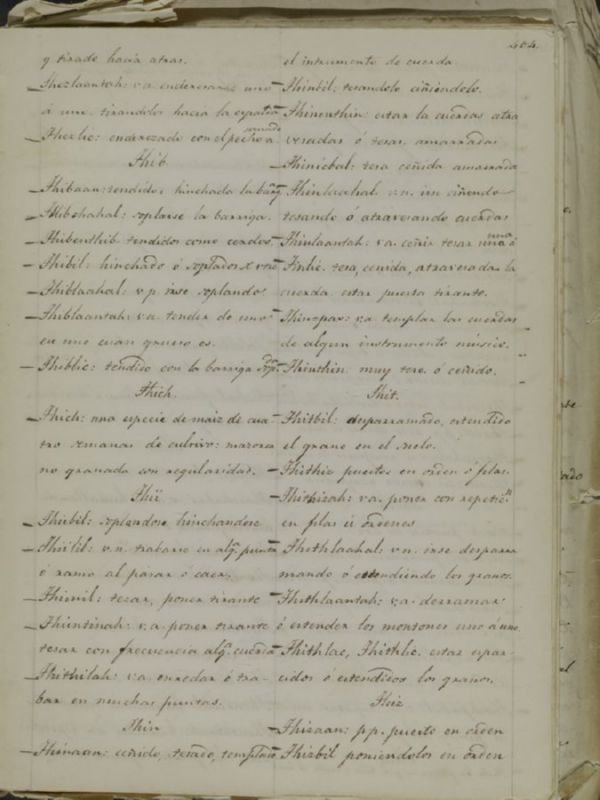 404.
y tirado hacia atras.
Thezlaantah: v.a. enderezarse uno
á uno tirandolos hacia la espalda
Thezlic: enderezado con el pecho
Thib
Thibaan: tendido, hinchada la barig
Thibchahal: soplarse la barriga.
Thibenthib tendidos como cerdos.
Thibil: hinchado ó soplados
Thiblaahal: v.p. irse soplando
Thiblaantah: v.a. tender de uno
en uno cuan grueso es.
Thiblic: tendido con la barriga sop.
Thich.
Thich: una especie de maiz de cua
tro semanas de cultivo: mazorca
no granada con regularidad.
Thii
Thiibil: soplandose hinchandose
Thiilil: v.n. trabarse en alg.ª punta
ó ramo al pasar ó caer.
tezar, poner tirante
Thiintinah: v.a. poner tirante
tesar con frecuencia alg.ª cuerda
Thiithilah: v.a. enredar ó tra-
bar en muchas puntas.
Thin
Thinaan: ceñido, tesado, templado
el intrumento de cuerda
Thinbil: tesandolo ciñiendolo.
Thinenthin: estar la cuerdas atra
vesadas ó tesas, amarradas
Thinicbal: tesa ceñida amarrada
Thinlaahal v.n. irse ciñendo
tesando ó atravesando cuerdas
Thinlaantah: v.a. ceñir tesar una á
una
Thinlic. tesa, ceñida, atravesadas la
cuerda estar puesta tirante.
v.a templar las cuerdas
de algun instrumento músico.
Thinthin muy teso ó ceñido.
Thit.
Thitbil: desparramado, estendido
el grano en el suelo.
puesto en orden ó filas.
v.a. poner con repetic.n
en filas ú órdenes
Thithlaahal: v.n. irse desparra
mando ó estendiendo los granos.
Thithlaantah: v.a. derramar
ó estender los montones uno á uno.
Thithlac, Thithlic. estar espar-
cidos ó estendidos los granos.
Thiz
Thizaan: p.p. puesto en orden
Thizbil poniendolos en orden